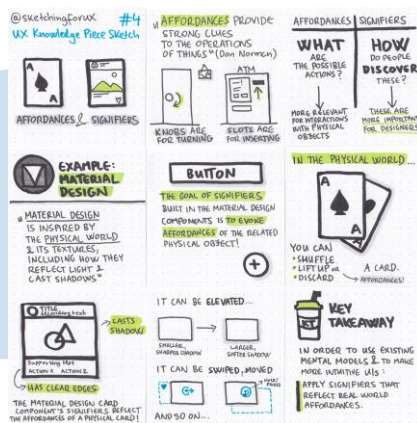 @sketchingforux
#4
UX Knowledge Piece Sketch
A
A
AFFORDANCES & SIGNIFIERS
"AFFORDANCES PROVIDE
STRONG CLUES
TO THE OPERATIONS
OF THINGS" (Don Norman)
ATM
KNOBS ARE
FOR TURNING
SLOTS ARE
FOR INSERTING
AFFORDANCES
SIGNIFIERS
WHAT
ARE
THE POSSIBLE
ACTIONS?
MORE RELEVANT
FOR INTERACTIONS
WITH PHYSICAL
OBJECTS
HOW
DO PEOPLE
DISCOVER
THESE?
THESE ARE
MORE IMPORTANT
FOR DESIGNERS!
EXAMPLE:
MATERIAL
DESIGN
"MATERIAL DESIGN
IS INSPIRED BY
THE PHYSICAL WORLD
& ITS TEXTURES,
INCLUDING HOW THEY
REFLECT LIGHT &
CAST SHADOWS"
BUTTON
THE GOAL OF SIGNIFIERS
BUILT IN THE MATERIAL DESIGN
COMPONENTS IS TO EVOKE
AFFORDANCES OF THE RELATED
PHYSICAL OBJECT!
IN THE PHYSICAL WORLD...
A
A
YOU CAN
• SHUFFLE
• LIFT UP OR
• DISCARD
A CARD.
AFFORDANCES!
TITLE
Secondary text
Supporting text
ACTION 1 ACTION 2
CASTS
SHADOW
HAS CLEAR EDGES
THE MATERIAL DESIGN CARD
COMPONENT'S SIGNIFIERS REFLECT
THE AFFORDANCES OF A PHYSICAL CARD!
IT CAN BE ELEVATED...
SMALLER,
SHARPER SHADOW
LARGER,
SOFTER SHADOW
IT CAN BE SWIPED, MOVED
AND SO ON...
KEY
TAKEAWAY
IN ORDER TO USE EXISTING
MENTAL MODELS & TO MAKE
MORE INTUITIVE UIs:
APPLY SIGNIFIERS THAT
REFLECT REAL WORLD
AFFORDANCES.